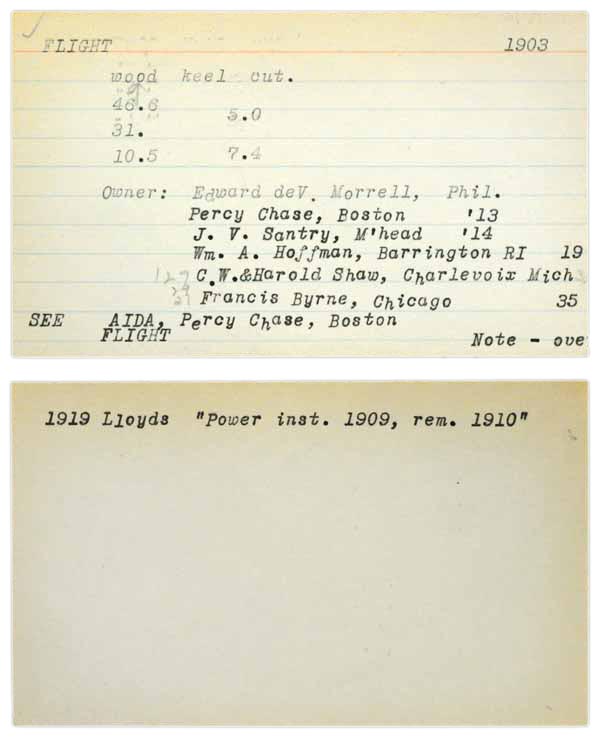 FLIGHT 1903
wood keel cut.
46.6 5.0
31.
10.5 7.4
Owner: Edward deV. Morrell, Phil.
Percy Chase, Boston '13
J. V. Santry, M'head '14
Wm. A. Hoffman, Barrington RI 19
C.W.&Harold Shaw, Charlevoix Mich
Francis Byrne, Chicago 35
SEE AIDA, Percy Chase, Boston
FLIGHT
Note - ove
1919 Lloyds "Power inst. 1909, rem. 1910"